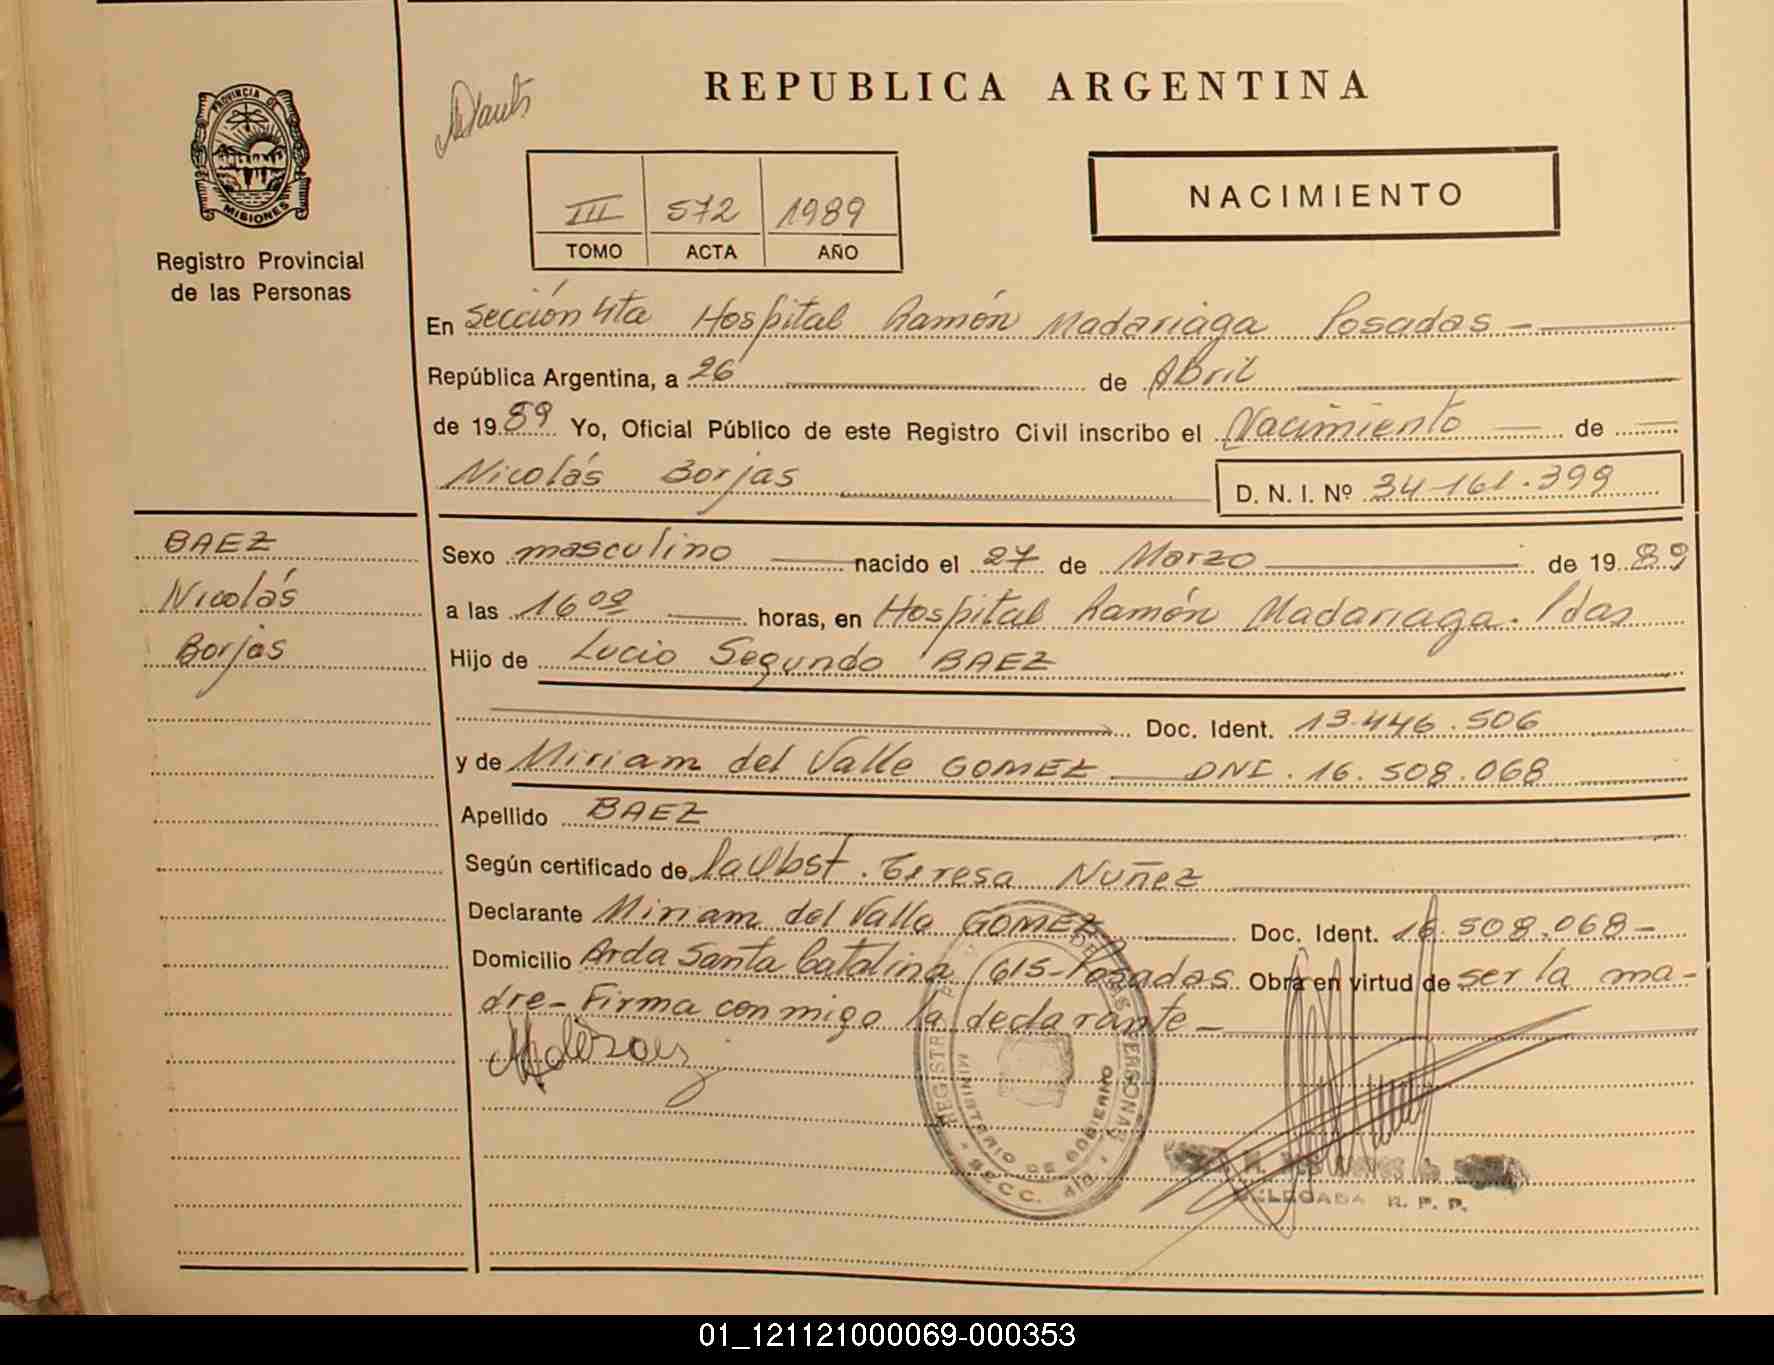 REPUBLICA ARGENTINA
PROVINCIA DE
MISIONES
Registro Provincial
de las Personas
III 572 1989
TOMO ACTA AÑO
NACIMIENTO
En Sección 4ta Hospital Ramón Madariaga Posadas -
República Argentina, a 26 de Abril
de 1989 Yo, Oficial Público de este Registro Civil inscribo el Nacimiento de
Nicolás Borjas D. N. I. Nº 34-161.399
BAEZ
Nicolás
Borjas
Sexo masculino nacido el 27 de Marzo de 1989
a las 16 09 horas, en Hospital Ramón Madariaga. Pdas
Hijo de Lucio Segundo BAEZ
Doc. Ident. 13.446.506
y de Miriam del Valle GOMEZ DNI. 16.508.068
Apellido BAEZ
Según certificado de la Obst. Teresa Nuñez
Declarante Miriam del Valle GOMEZ Doc. Ident. 16.508.068-
Domicilio Avda Santa Catalina 1615-Posadas. Obra en virtud de ser la ma-
dre- Firma conmigo la declarante-
MINISTERIO DE GOBIERNO
SECC. 4ta
DELEGADA R. P. P.
01_121121000069-000353